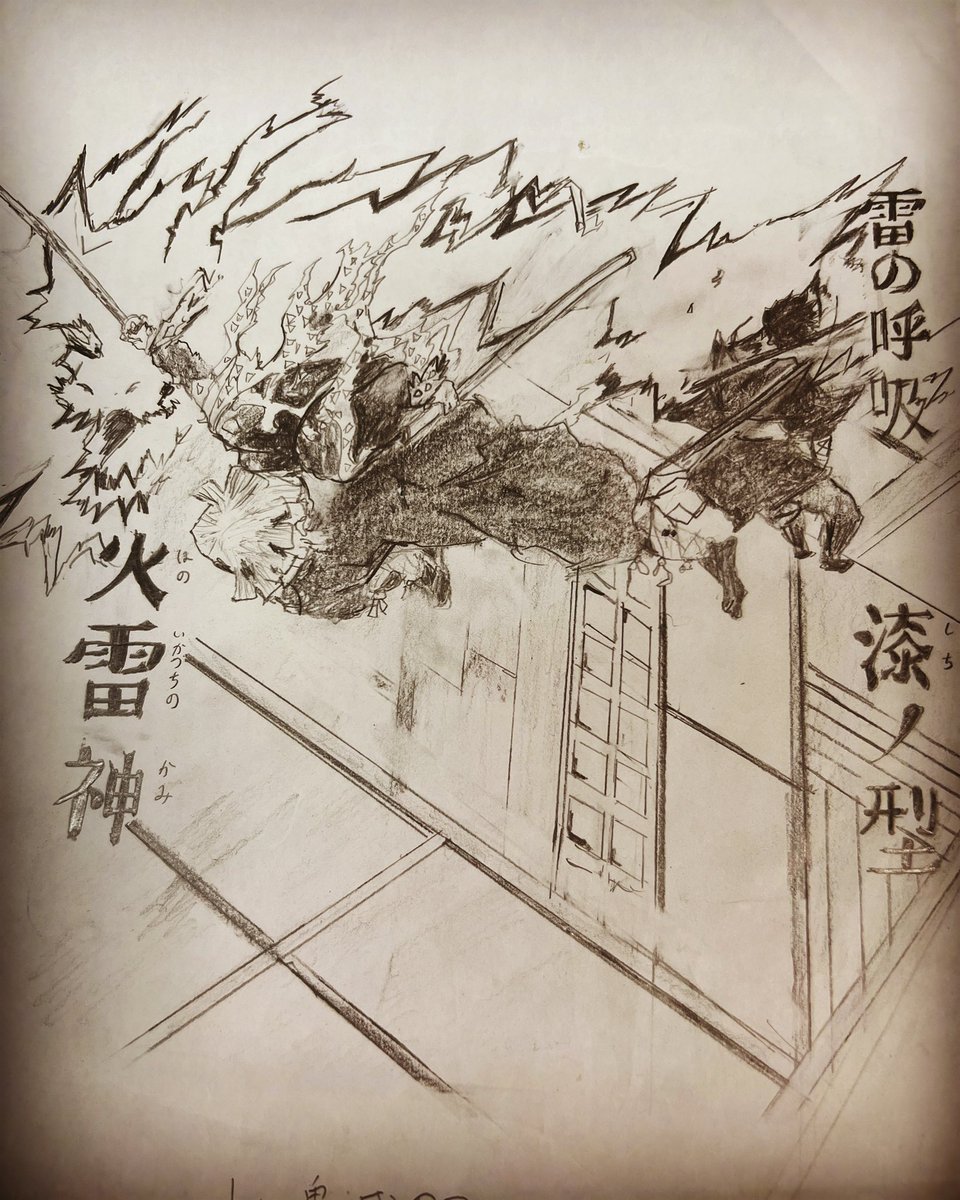 雷の呼吸
漆ノ型
しち
火雷神
ほの
いかづちの
かみ